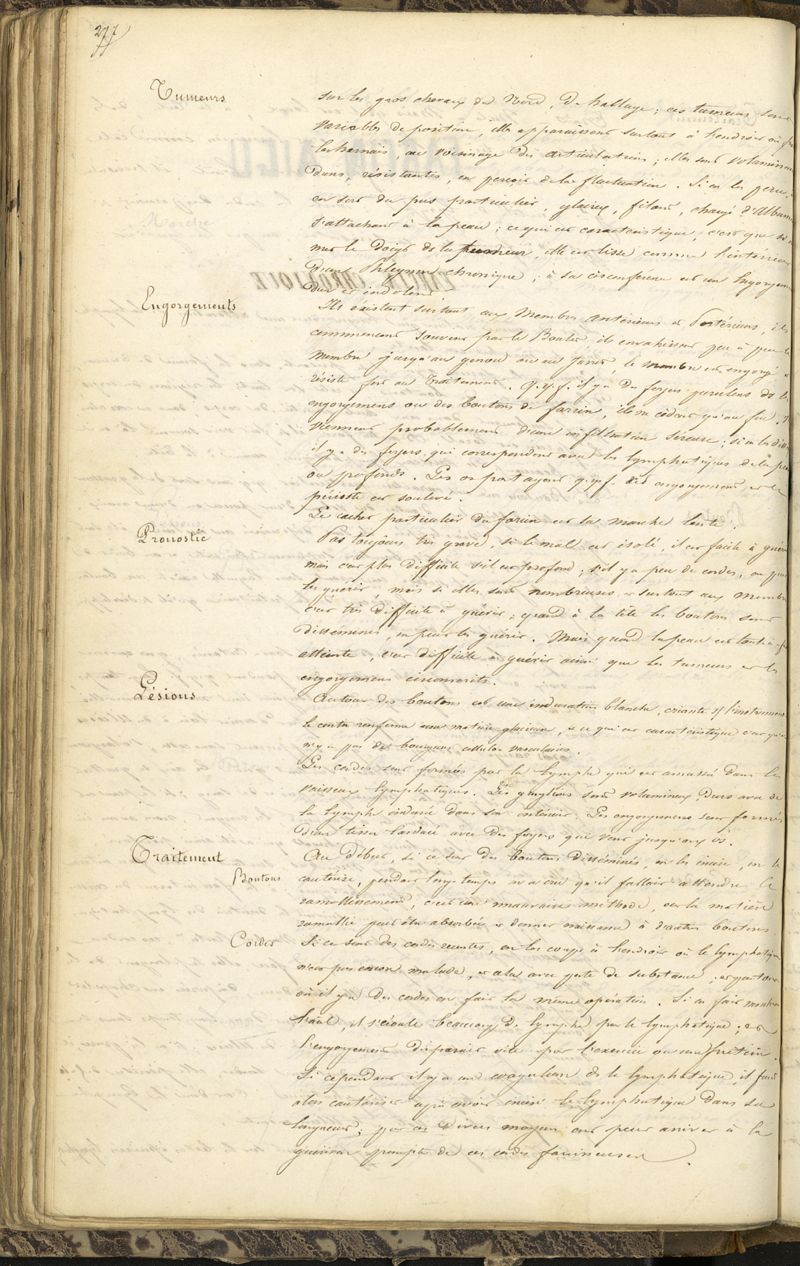 277
Tumeurs
sur les gros chevaux du Nord, de hallage ; ces tumeurs sont
variables de position, elles apparaissent surtout à l'endroit où
les harnais, au voisinage des articulations ; elles sont volumineuses
Dures, résistantes, on perçoit de la fluctuation. Si on les perce,
en sort du pus particulier, glaireux, filant, chargé d'Albumine
s'attachant à la peau ; ce qui est caractéristique, c'est que si
met le Doigt de la tumeur, elle est lisse comme l'intérieur
D'un Phlegmon chronique ; à sa circonférence est un Engorgement
Dur et indolent
Engorgements
Ils existent surtout aux Membres Antérieurs et Postérieurs, ils
commencent souvent par le Boulet, ils envahissent peu à peu le
Membre jusqu'au genou ou au Jarret, le membre est engorgé
résiste fort au Traitement. q.q.f. il y a Des foyers purulents de
engorgements ou des boutons de farcin, ils ne cèdent qu'au feu.
viennent probablement d'une infiltration séreuse ; si on les
il y a des foyers qui correspondent avec les lymphatiques de la peau
ou profonds. Les os partagent q.q.f. cet engorgement et le
périoste est soulevé.
Le cachet particulier du farcin est sa marche lente.
Pronostic
Pas toujours très grave, si le mal est isolé, il est facile à guérir
mais c'est plus difficile s'il est profond ; s'il y a peu de cordes, on peut
les guérir, mais si elles sont nombreuses et surtout aux membres
c'est très difficile à guérir ; quand à la tête les boutons sont
disséminés, on peut les guérir. Mais quand la peau est tout à
atteinte, c'est difficile à guérir ainsi que les tumeurs et les
engorgements circonscrits.
Lésions
Autour des boutons est une induration blanche, criante s/ l'instrument
le centre renferme une matière glaireuse, et ce qui est caractéristique c'est qu'il
n'y a pas de bourgeons cellulo-vasculaires.
Les cordes sont formées par la lymphe qui est amassée dans les
vaisseaux lymphatiques. Les ganglions sont volumineux, Durs avec de
la lymphe indurée dans son intérieur. Les engorgements sont formés
D'un tissu lardacé avec Des foyers qui vont jusqu'aux os.
Traitement
Boutons
Au Début, si ce sont Des boutons Disséminés, on les incise, on les
cautérise, pendant longtemps on a cru qu'il fallait attendre le
ramollissement, c'est une mauvaise méthode, car la matière
ramollie peut être absorbée et donner naissance à d'autres boutons.
Cordes
Si ce sont des cordes récentes, on les coupe à l'endroit où le lymphatique
n'est pas encore malade, et cela avec perte de substance, et partout
où il y a Des cordes on fait la même opération. Si on fait
l'animal, il s'écoule beaucoup De lymphe par le lymphatique, et
l'engorgement disparaît vite par l'exercice ou une friction.
Si cependant il y a un coagulum de le lymphatique, il faut
alors cautériser après avoir incisé le lymphatique dans sa
longueur ; par ces Divers moyens on peut arriver à la
guérison prompte de ces cordes farcineuses.